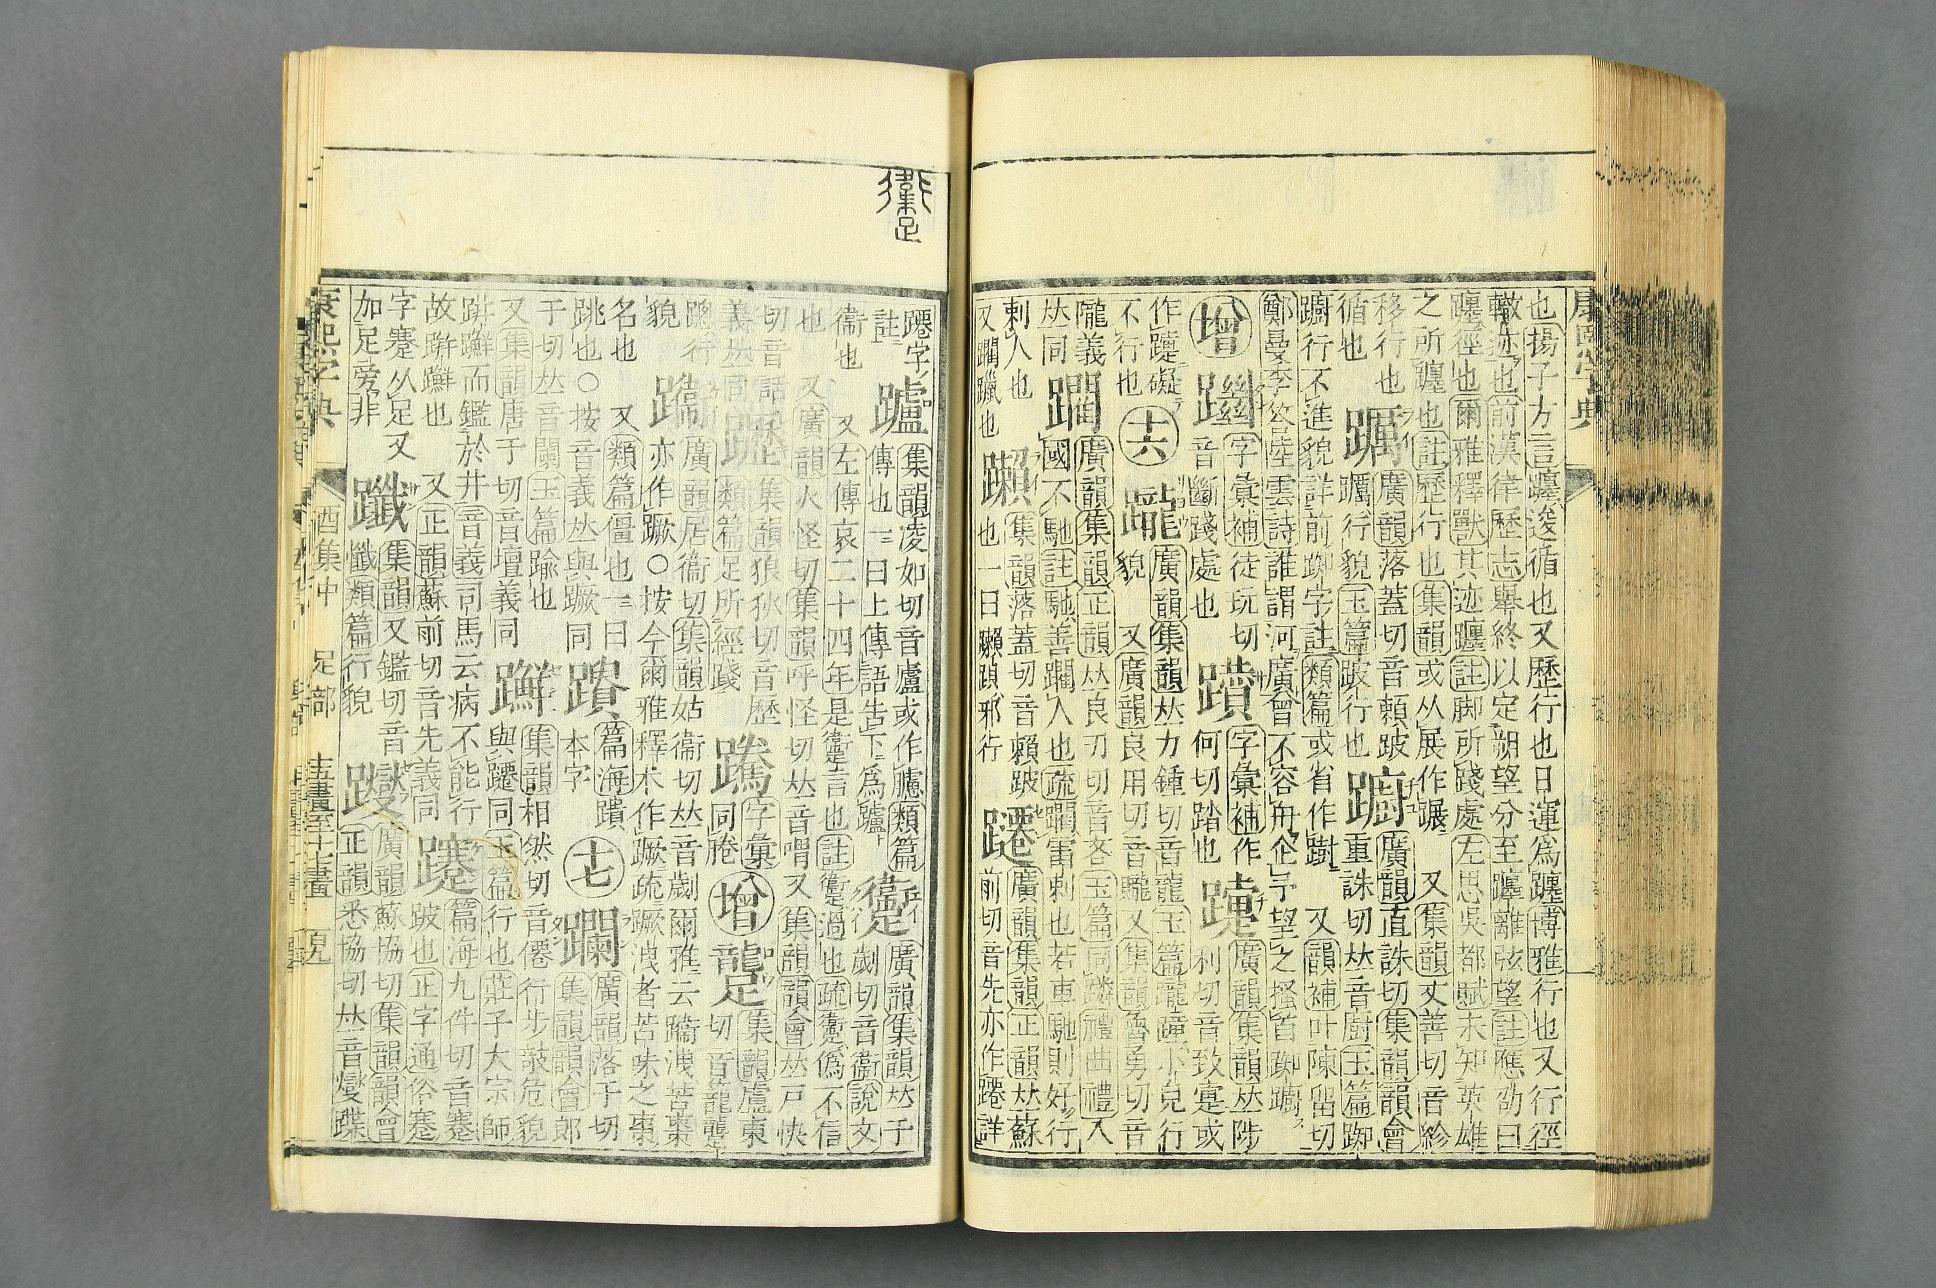 也揚子方言躔逡循也又歷行也日運爲躔博雅行也又行徑
轍迹也前漢律歷志舉終以定朔望分至躔離弦望註應劭曰
躔徑也爾雅釋獸其迹躔註脚所踐處左思吳都賦未知英雄
之所躔也註歷行也集韻或从展作蹍 又集韻丈善切音紾
移行也 躢 廣韻落蓋切音賴跛
循也 行貌玉篇跛行也 躕 廣韻直誅切集韻韻會
重誅切𠀤音廚玉篇踟
躕行不進貌詳前踟字註類篇或省作躕 又韻補叶陳留切
鄭曼季答陸雲詩誰謂河廣曾不容舟企予望之搔首踟躕
增 字彙補徒玩切
音斷踐處也 躓 字彙補作
何切踏也 躓 廣韻集韻𠀤陟
利切音致疐或
作躓礙
不行也 六 躘 廣韻集韻𠀤力鍾切音龍玉篇躘蹱小兒行
貌 又廣韻良用切音贚又集韻魯勇切音
隴義
𠀤同 躙 廣韻集韻正韻𠀤良刃切音吝玉篇同躪禮曲禮入
國不馳註馳善躙人也疏躙雷刺也若車馳則好行
刺人也
又躙躐也 㿗 集韻落蓋切音賴跛
也一曰㿗䫙邪行 躚 廣韻集韻正韻𠀤蘇
前切音先亦作蹮詳
蹮字
註 躆 集韻凌如切音廬或作臚類篇
傳也一曰上傳語告下爲臚 躗 廣韻集韻𠀤于
歲切音衞說文
衞也 又左傳哀二十四年是躗言也註躗過也疏躗僞不信
也 又廣韻火怪切集韻呼怪切𠀤音㗂又集韻韻會𠀤戶快
切音話
義𠀤同 躒 集韻狼狄切音歷
類篇足所經踐 字彙
同䠽 增 躘 集韻盧東
切音籠躘
躘行
貌 躛 廣韻居衞切集韻姑衞切𠀤音劌爾雅云蹶洩苦棗
亦作蹶〇按今爾雅釋木作蹶疏蹶洩者苦味之棗
名也 又類篇僵也一曰
跳也〇按音義𠀤與蹶同 躓 篇海躓
本字 七 躝 廣韻落干切
集韻韻會郎
干切𠀤音闌玉篇踰也
又集韻唐于切音壇義同 躚 集韻相然切音僊行步欹危貌
與蹮同玉篇行也莊子大宗師
跰𨇤而鑑於井音義司馬云病不能行
故跰𨇤也 又正韻蘇前切音先義同 躚 篇海九件切音蹇
跛也正字通俗蹇
字蹇从足又
加足旁非 躔 集韻又鑑切音
懺類篇行貌 躞 廣韻蘇協切集韻韻會
正韻悉協切𠀤音燮蹀
康熙字典
酉集中 足部 十五畫至十七畫